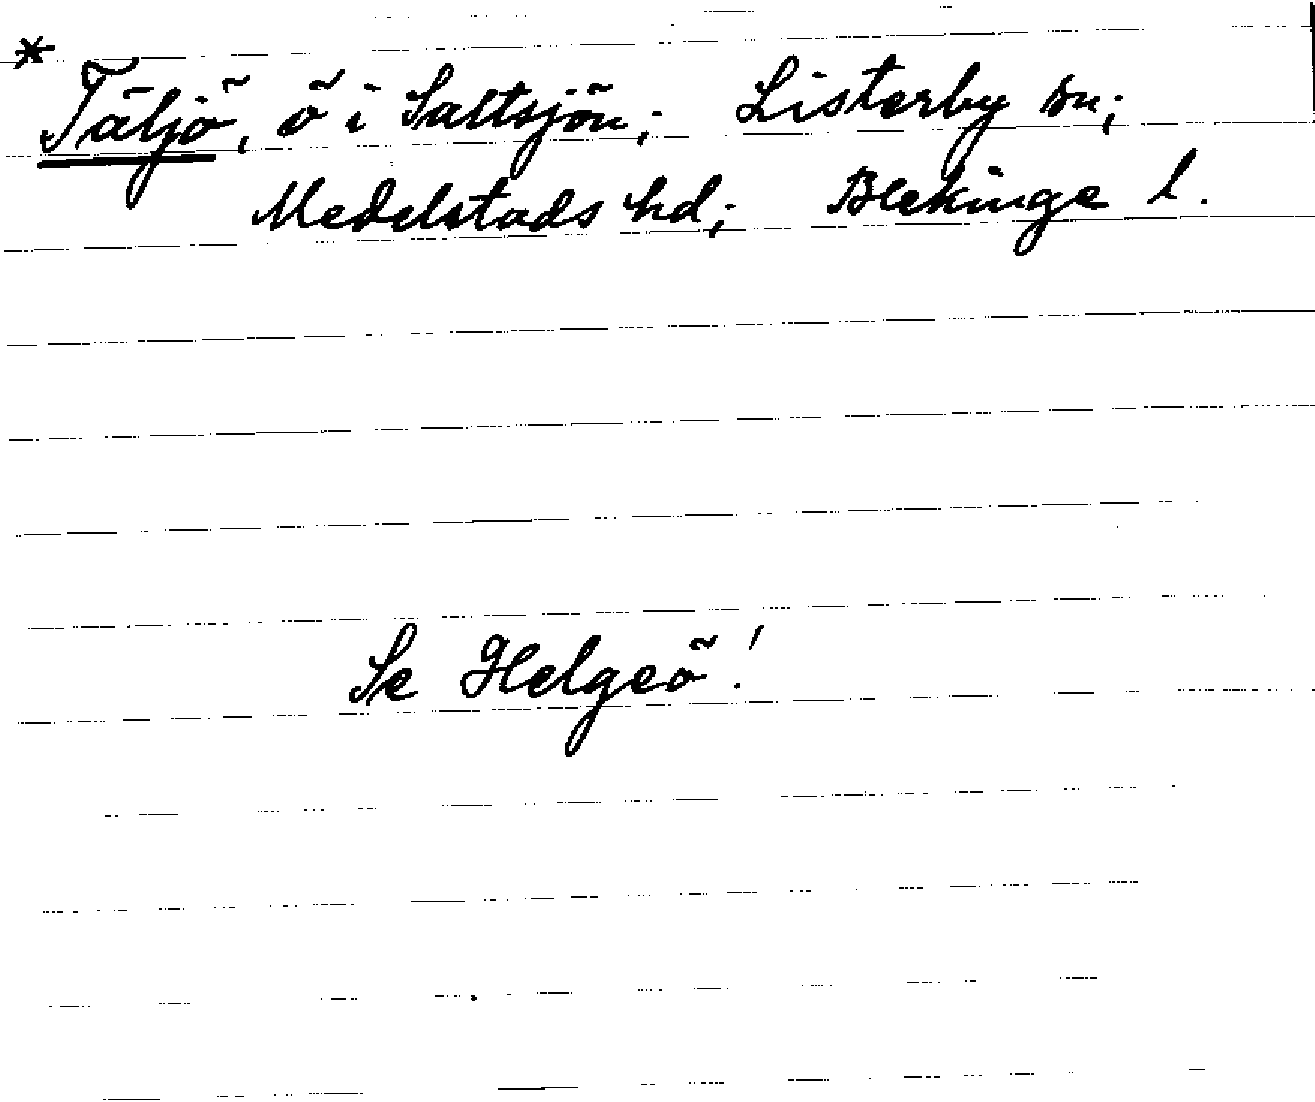 * Täljö, ö i Saltsjön; Listerby sn;
Medelstads hd; Blekinge l.
Se Helgeö!